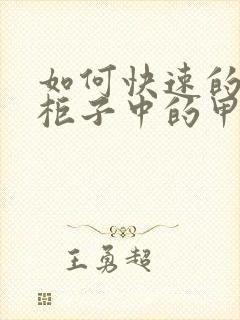 如何快速的
柜子中的甲
王勇超